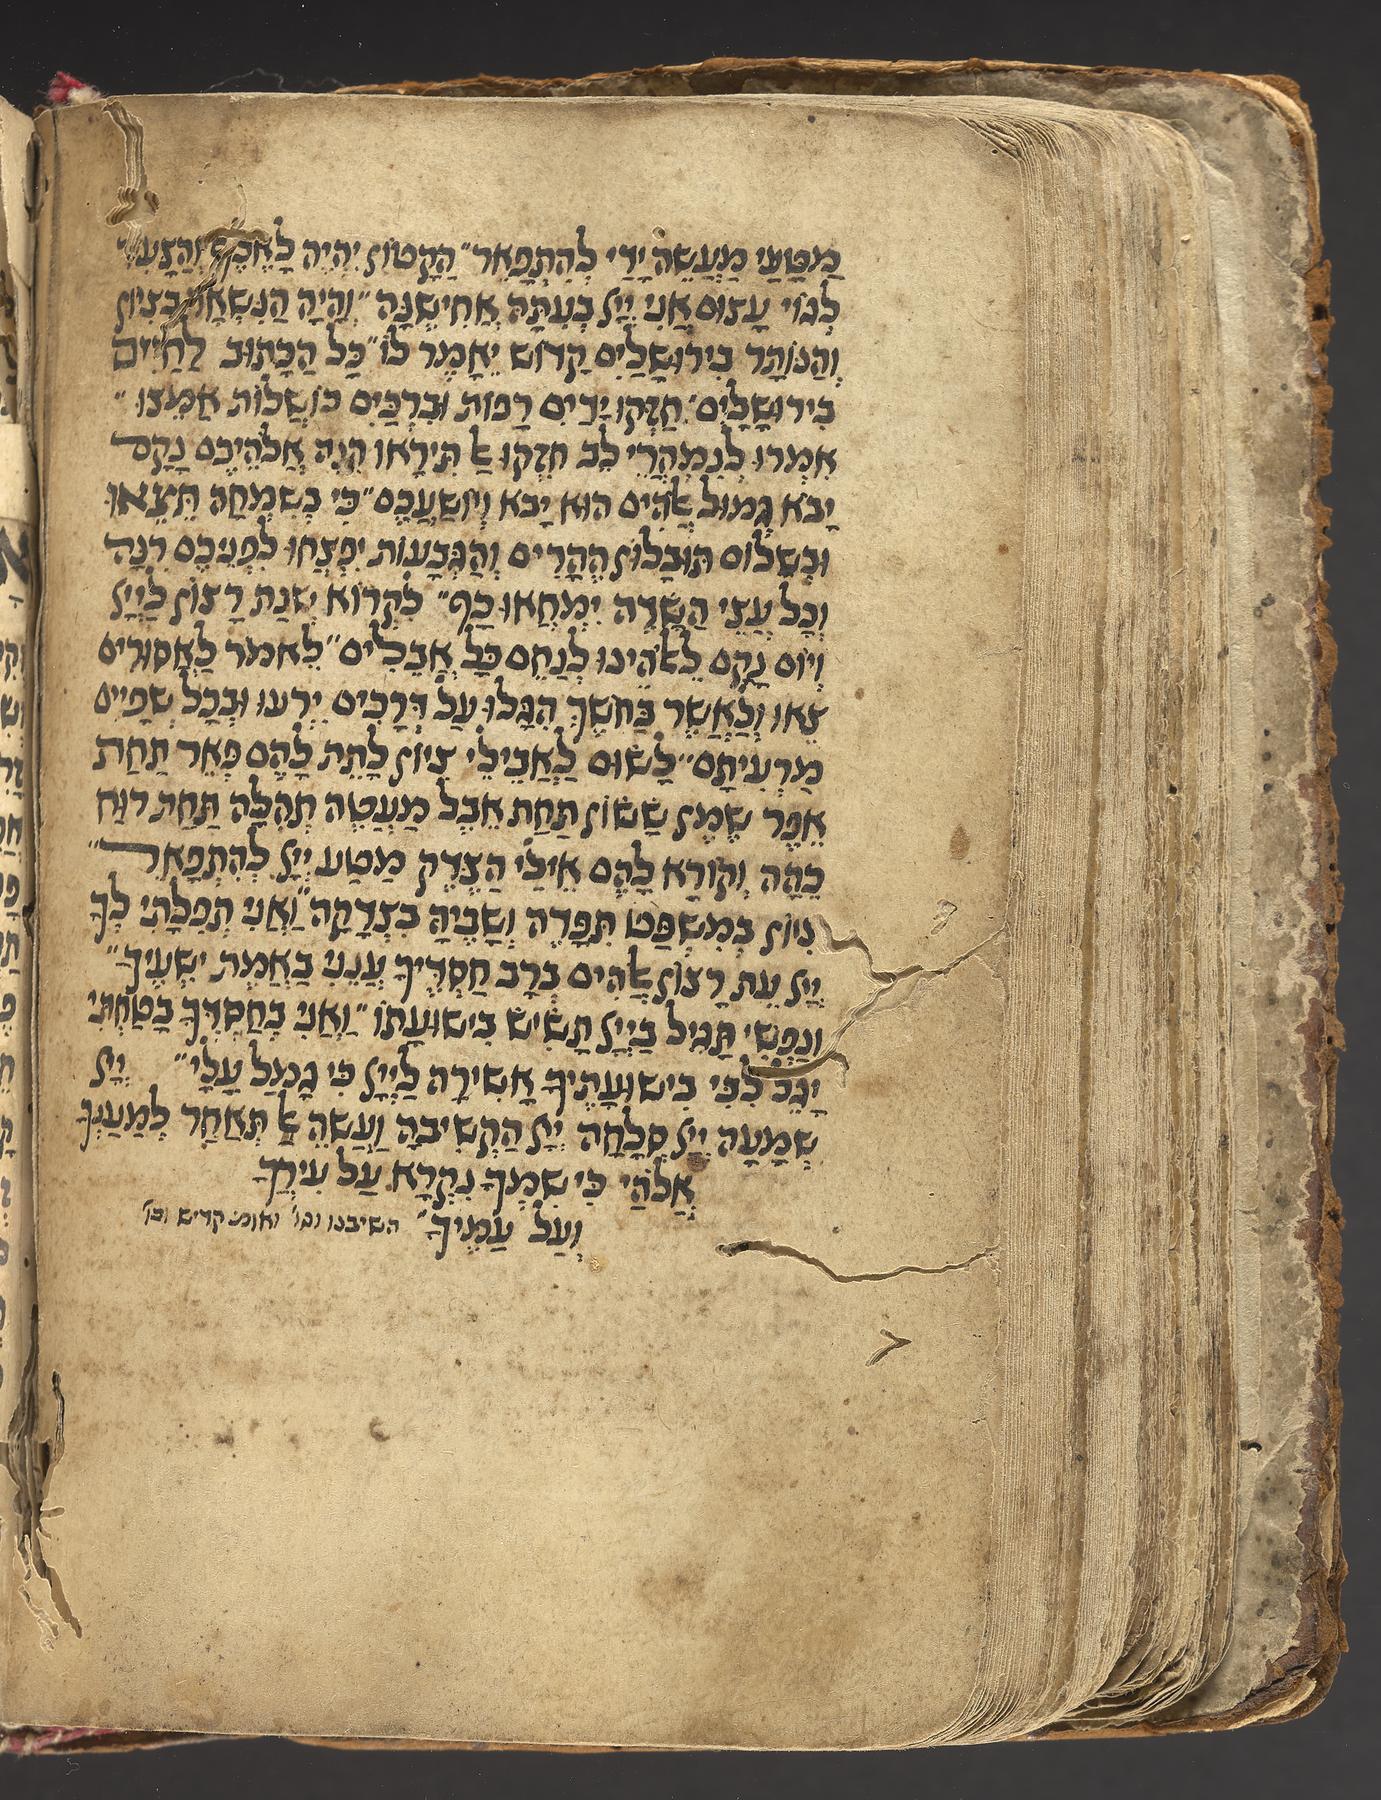 מַטָּעַי מַעֲשֵׂה יָדַי לְהִתְפָּאֵר״ הַקָּטוֹן יִהְיֶה לָאֶלֶף וְהַצָּעִיר
לְגוֹי עָצוּם אֲנִי יְיָ בְּעִתָּהּ אֲחִישֶׁנָּה״ וְהָיָה הַנִּשְׁאָר בְּצִיּוֹן
וְהַנּוֹתָר בִּירוּשָׁלַיִם קָדוֹשׁ יֵאָמֶר לוֹ״ כָּל הַכָּתוּב לַחַיִּים
בִּירוּשָׁלָיִם״ חַזְּקוּ יָדַיִם רָפוֹת וּבִרְכַּיִם כּוֹשְׁלוֹת אַמֵּצוּ״
אִמְרוּ לְנִמְהֲרֵי לֵב חִזְקוּ אַל תִּירָאוּ הִנֵּה אֱלֹהֵיכֶם נָקָם
יָבֹא גְּמוּל אֱלֹהִים הוּא יָבֹא וְיוֹשַׁעֲכֶם״ כִּי בְשִׂמְחָה תֵצֵאוּ
וּבְשָׁלוֹם תּוּבָלוּן הֶהָרִים וְהַגְּבָעוֹת יִפְצְחוּ לִפְנֵיכֶם רִנָּה
וְכָל עֲצֵי הַשָּׂדֶה יִמְחֲאוּ כָף״ לִקְרוֹא שְׁנַת רָצוֹן לַיְיָ
וְיוֹם נָקָם לֵאלֹהֵינוּ לְנַחֵם כָּל אֲבֵלִים״ לֵאמֹר לַאֲסוּרִים
צֵאוּ וְלַאֲשֶׁר בַּחֹשֶׁךְ הִגָּלוּ עַל דְּרָכִים יִרְעוּ וּבְכָל שְׁפָיִים
מַרְעִיתָם״ לָשׂוּם לַאֲבֵילֵי צִיּוֹן לָתֵת לָהֶם פְּאֵר תַּחַת
אֵפֶר שֶׁמֶן שָׂשׂוֹן תַּחַת אֵבֶל מַעֲטֵה תְהִלָּה תַּחַת רוּחַ
כֵּהָה וְקוֹרָא לָהֶם אֵילֵי הַצֶּדֶק מַטַּע יְיָ לְהִתְפָּאֵר״
צִיּוֹן בְּמִשְׁפָּט תִּפָּדֶה וְשָׁבֶיהָ בִּצְדָקָה״ וַאֲנִי תְפִלָּתִי לְךָ
יְיָ עֵת רָצוֹן אֱלֹהִים בְּרָב חַסְדֶּיךָ עֲנֵנִי בֶּאֱמֶת יִשְׁעֶיךָ״
וְנַפְשִׁי תָּגִיל בַּיְיָ תָּשִׂישׂ בִּישׁוּעָתוֹ״ וַאֲנִי בְּחַסְדְּךָ בָטַחְתִּי
יָגֵל לִבִּי בִּישׁוּעָתֶיךָ אָשִׁירָה לַיְיָ כִּי גָמַל עָלָי״ יְיָ
שְׁמָעָה יְיָ סְלָחָה יְיָ הַקְשִׁיבָה וַעֲשֵׂה אַל תְּאַחַר לְמַעַנְךָ
אֱלֹהַי כִּי שִׁמְךָ נִקְרָא עַל עִירְךָ
וְעַל עַמֶּיךָ״ השיבנו וכו׳ ואומ׳ קדיש וכו׳